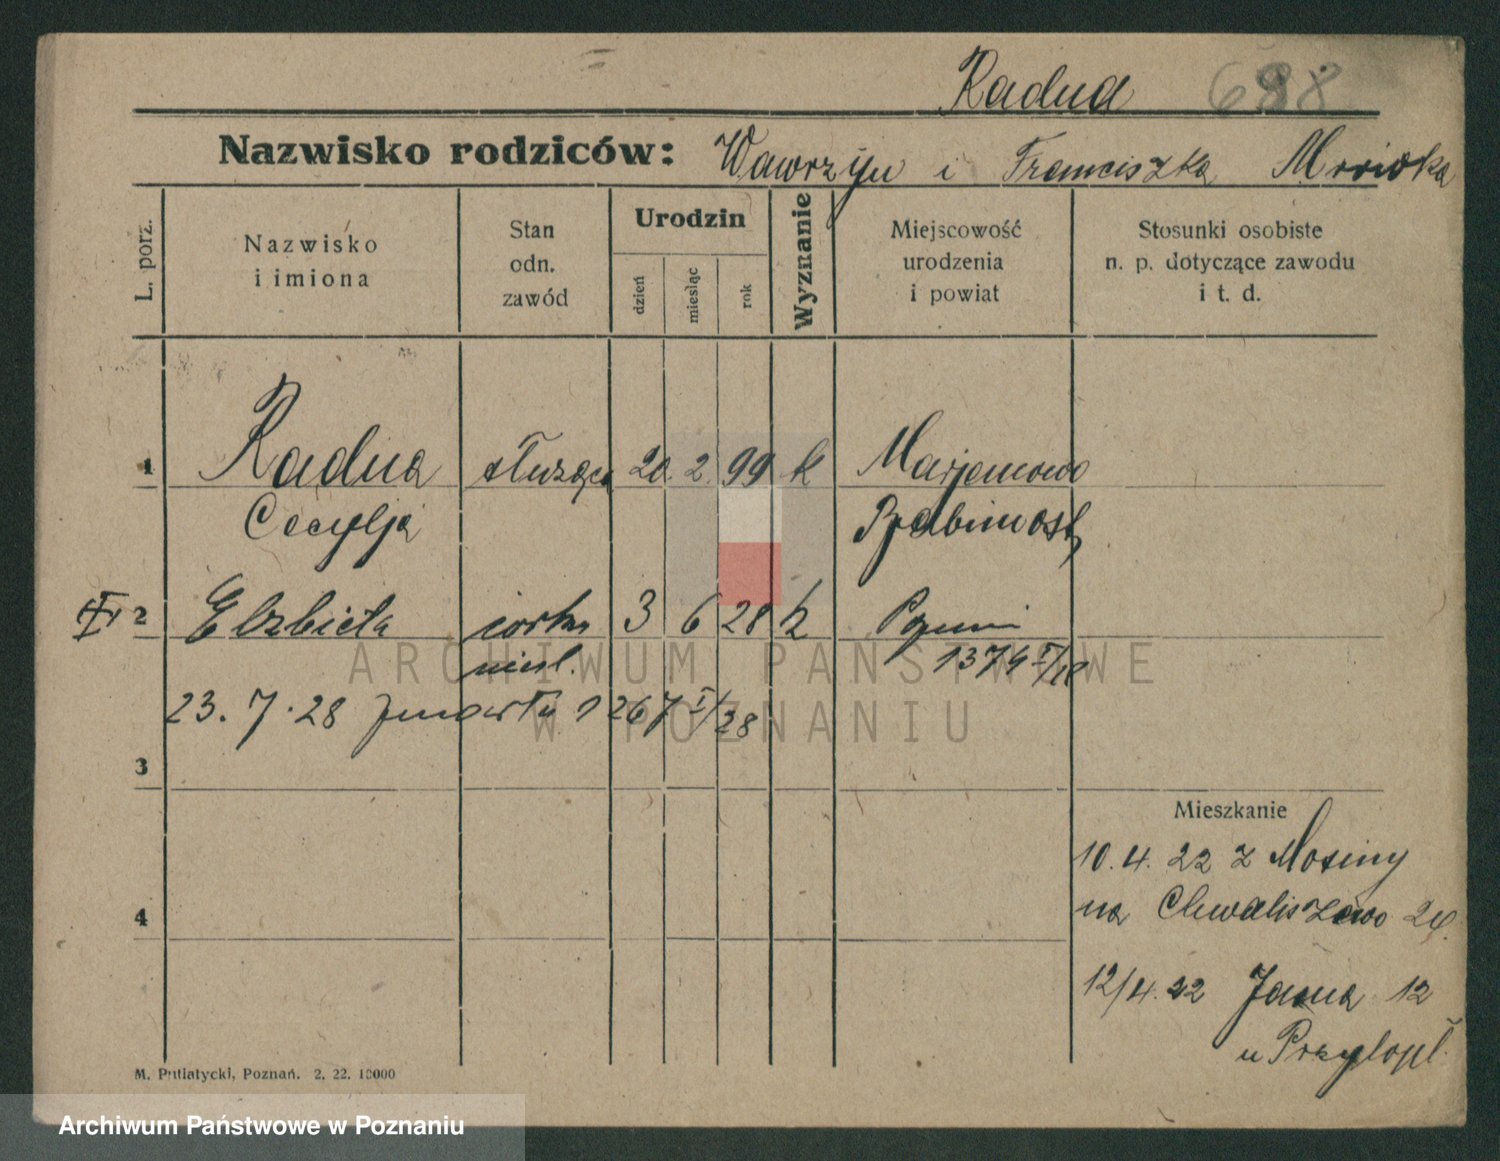 Radua 688
Nazwisko rodziców: Wawrzyn i Franciszka
L. porz.
Nazwisko
i imiona
Stan
odn.
zawód
Urodzin
dzień
miesiąc
rok
Wyznanie
Miejscowość
urodzenia
i powiat
Stosunki osobiste
n. p. dotyczące zawodu
i t. d.
1 Radua służąca 20 2 99 k Marjanowo
Cecylja Babimost
2 Elżbieta córka 3 6 28 k
niesl. 1379
23. 7. 28 zmarła 1267 I/28
3
Mieszkanie
10. 4. 22 z Mosiny
na Chwaliszewo
4
12/4. 22 Jasna 12
u
M. Putiatycki, Poznań. 2. 22. 10000
ARCHIWUM PAŃSTWOWE
W POZNANIU
Archiwum Państwowe w Poznaniu